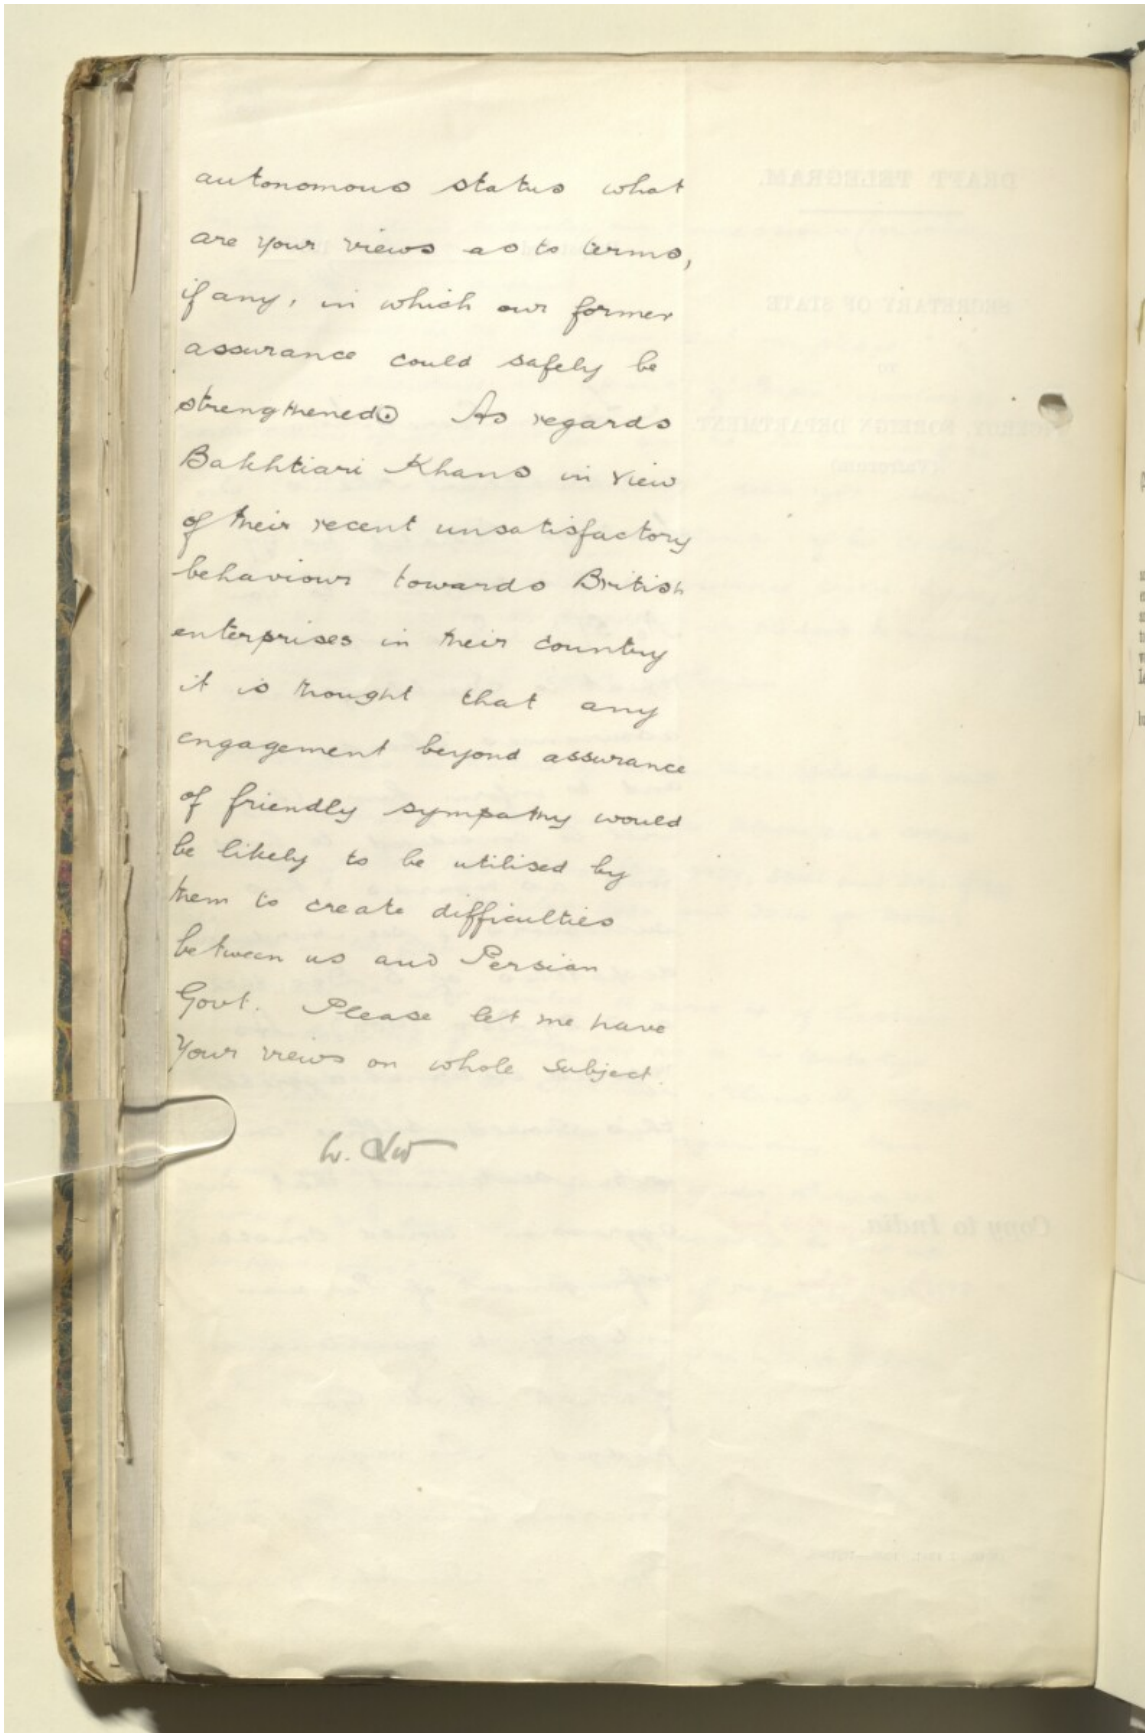 autonomous status what
are your views as to terms,
if any, in which our former
assurance could safely be
strengthened⊙ As regards
Bakhtiari Khans in view
of their recent unsatisfactory
behaviour towards British
enterprises in their country
it is thought that any
engagement beyond assurance
of friendly sympathy would
be likely to be utilised by
them to create difficulties
between us and Persian
Govt. Please let me have
Your views on whole subject.
DRAFT TELEGRAM.
SECRETARY OF STATE
TO
FOREIGN DEPARTMENT
Copy to India